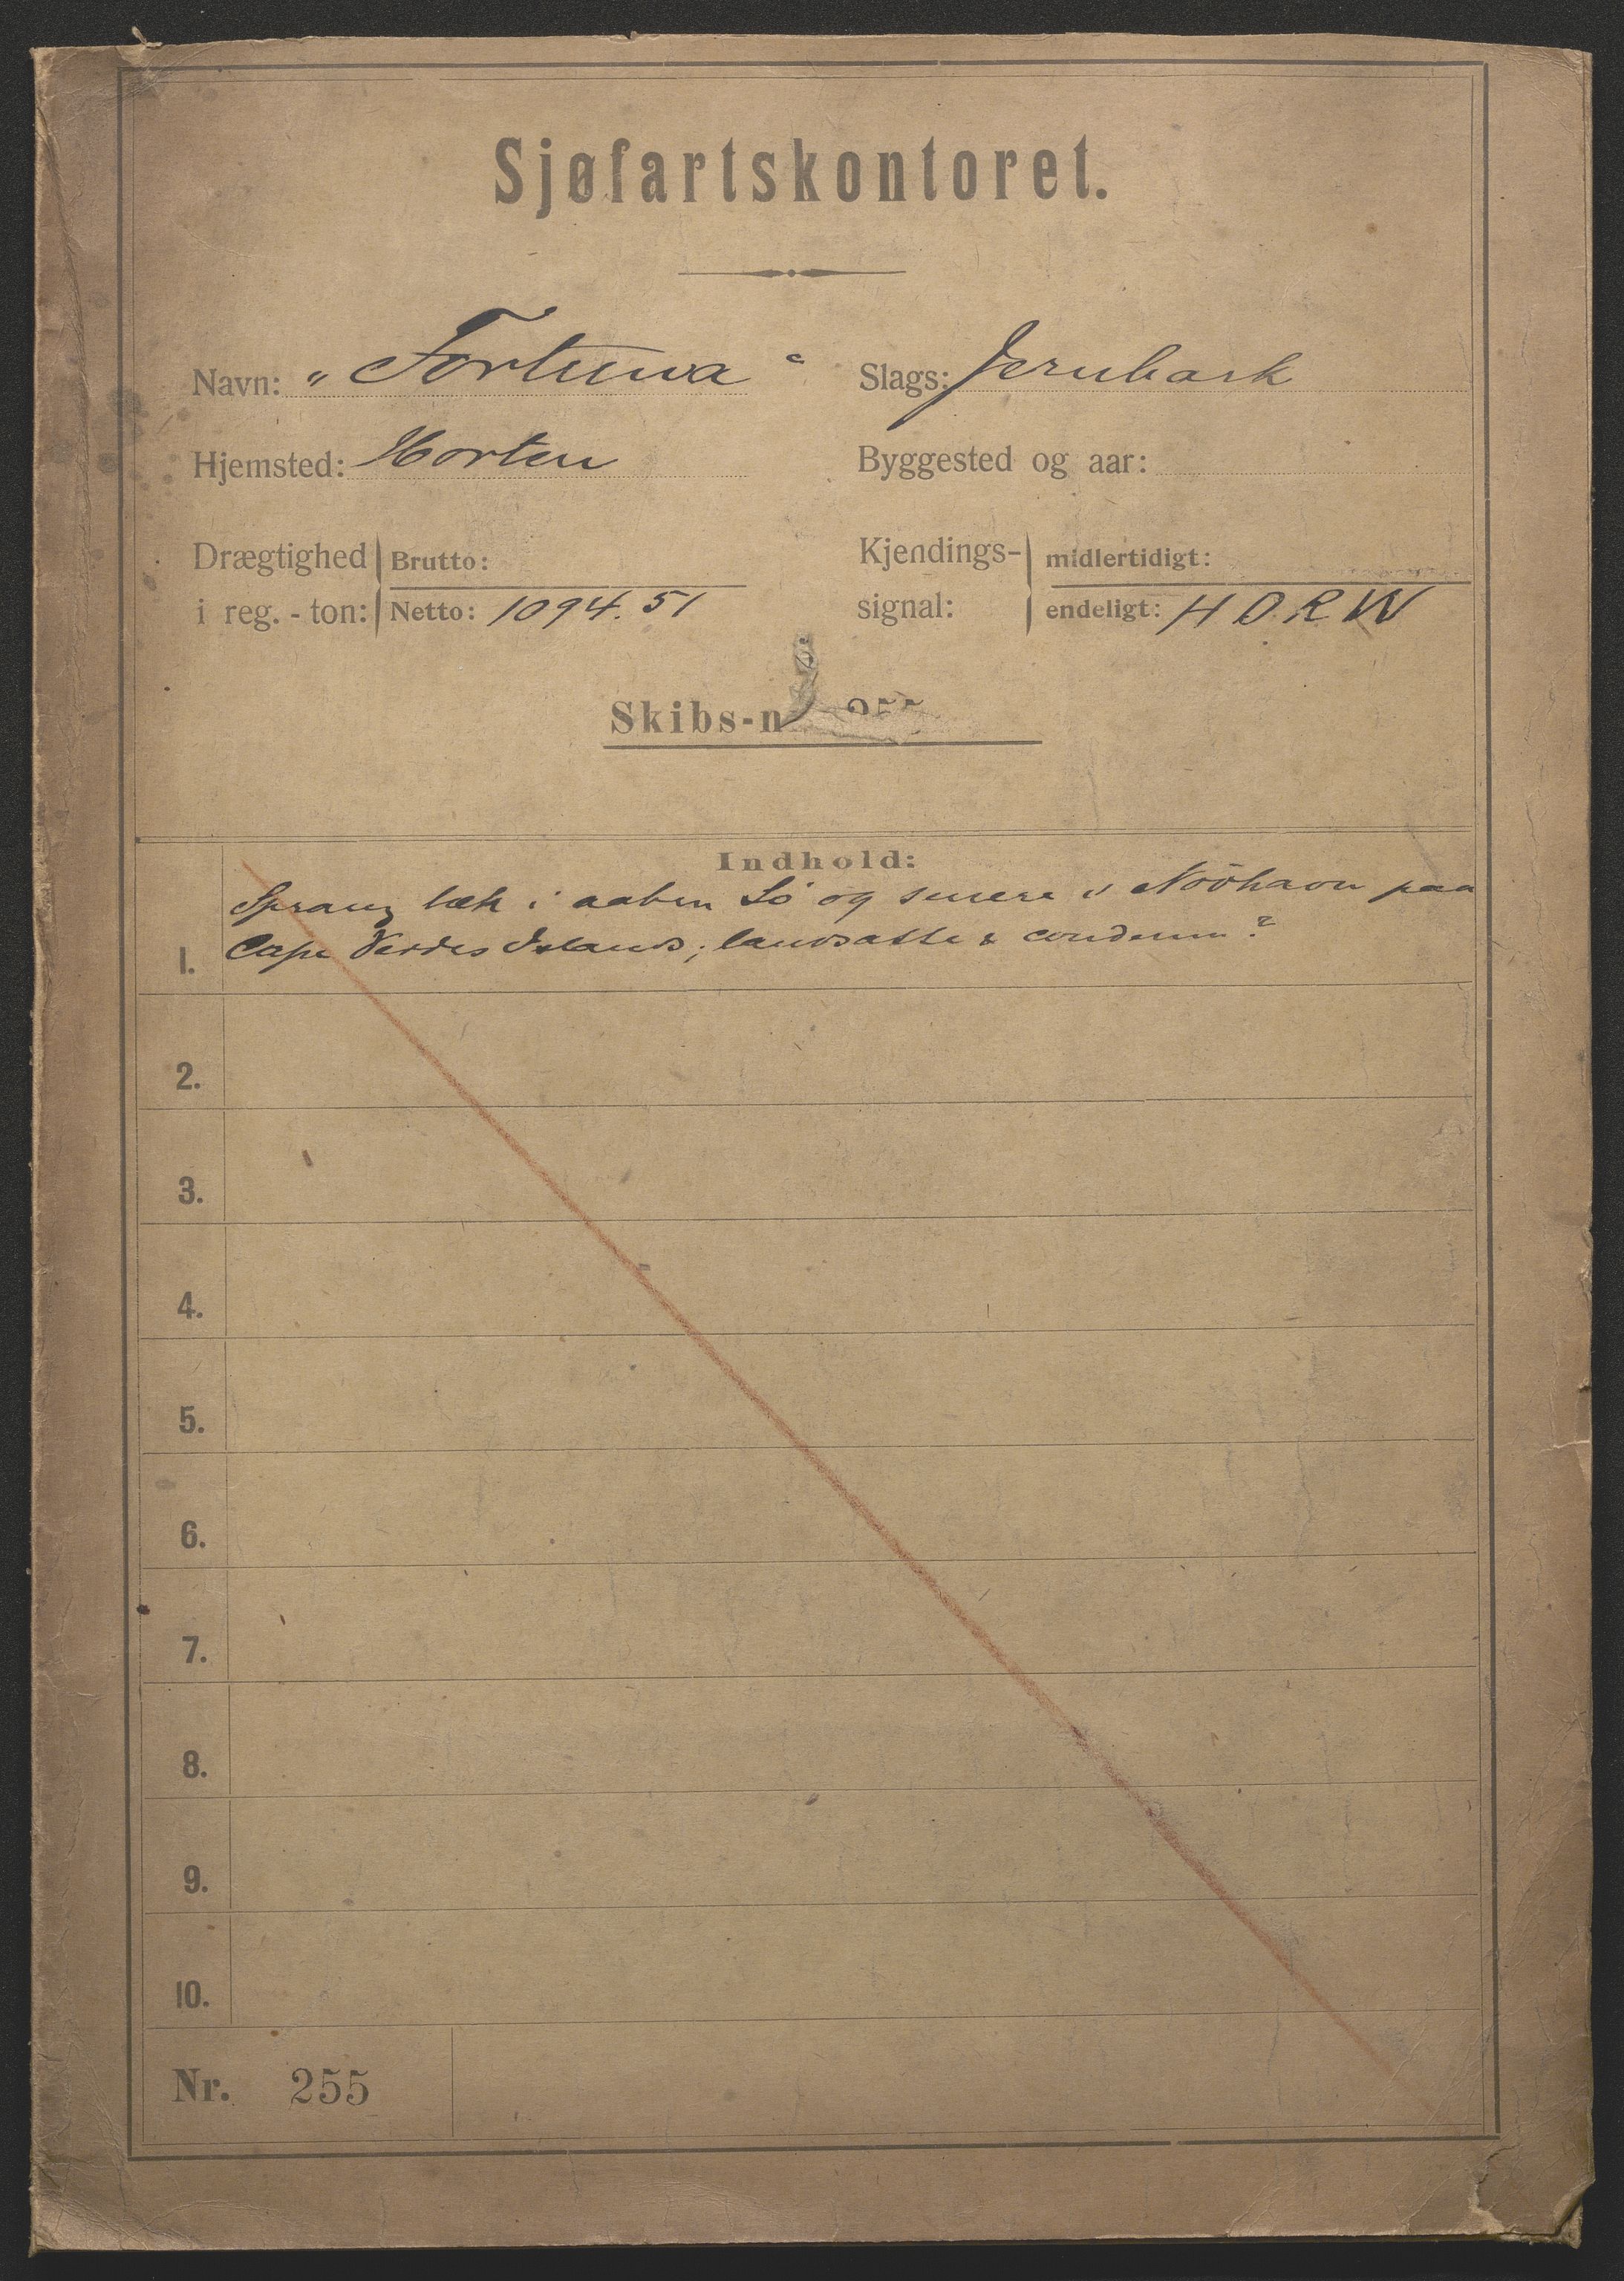 Sjøfartskontoret.
Navn: „Fortuna“ Slags: Jernbark
Hjemsted: Horten Byggested og aar:
Drægtighed Brutto: Kjendings- midlertidigt:
i reg. - ton: Netto: 1094.51 signal: endeligt: H D. R W
Skibs-n 255
Indhold:
Sprang læk i aaben Sö og senere i Nödhavn paa
1. Cape Verdes Islands; landsatte &
2.
3.
4.
5.
6.
7.
8.
9.
10.
Nr. 255